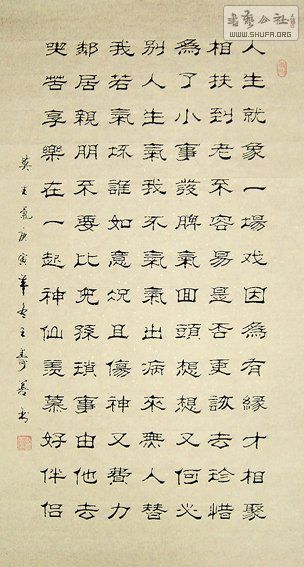 人生就象一場戏因為有緣才相聚
相扶到老不容易是否更該去珍惜
為了小事發脾氣回頭想想又何必
别人生氣我不氣氣出病來無人替
我若氣坏誰如意况且傷神又費力
鄰居親朋不要比兒孫瑣事由他去
苦享樂在一起神仙羨慕好伴侣
莫生氣庚寅年王壽善书
书艺公社
WWW.SHUFA.ORG